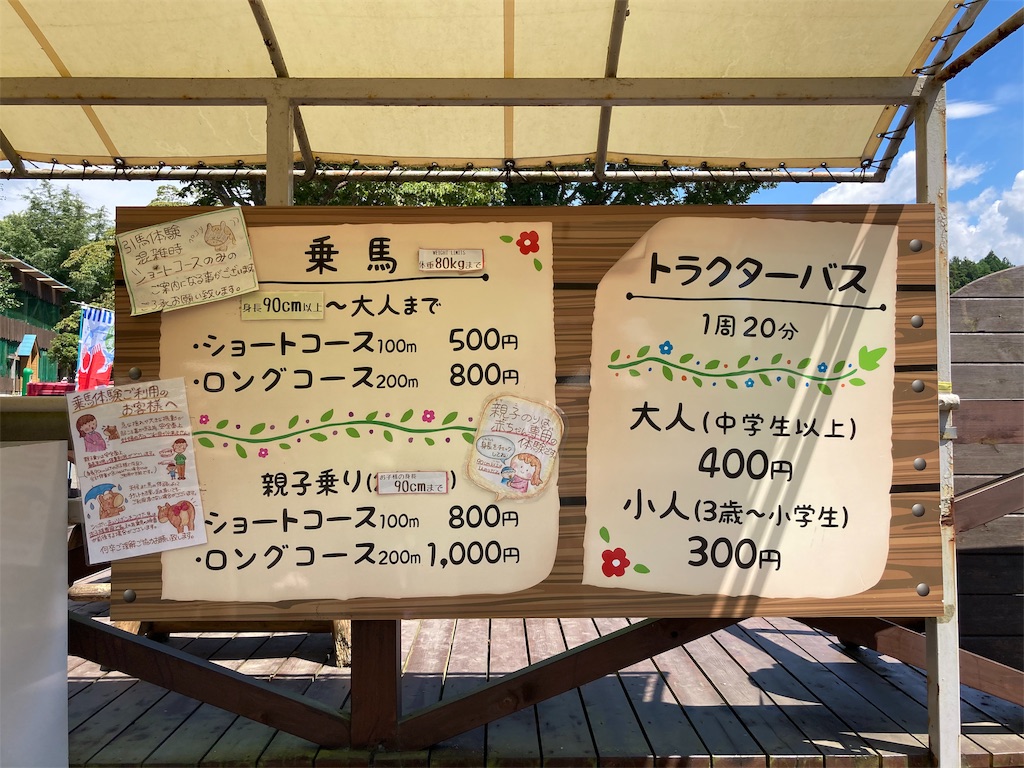 引馬体験
混雑時
ショートコースのみの
ご案内になる事がございます。
ご了承お願い致します。
乗馬
WEIGHT LIMITS
体重80kgまで
身長90cm以上～大人まで
・ショートコース100m 500円
・ロングコース200m 800円
乗馬体験ご利用の
お客様へ
何卒ご理解ご協力お願い致します。
親子のり
専用の
体験です
身長をチェック
してね!
親子乗り(
お子様の身長
90cmまで
)
・ショートコース100m 800円
・ロングコース200m 1,000円
トラクターバス
1周20分
大人(中学生以上)
400円
小人(3歳～小学生)
300円